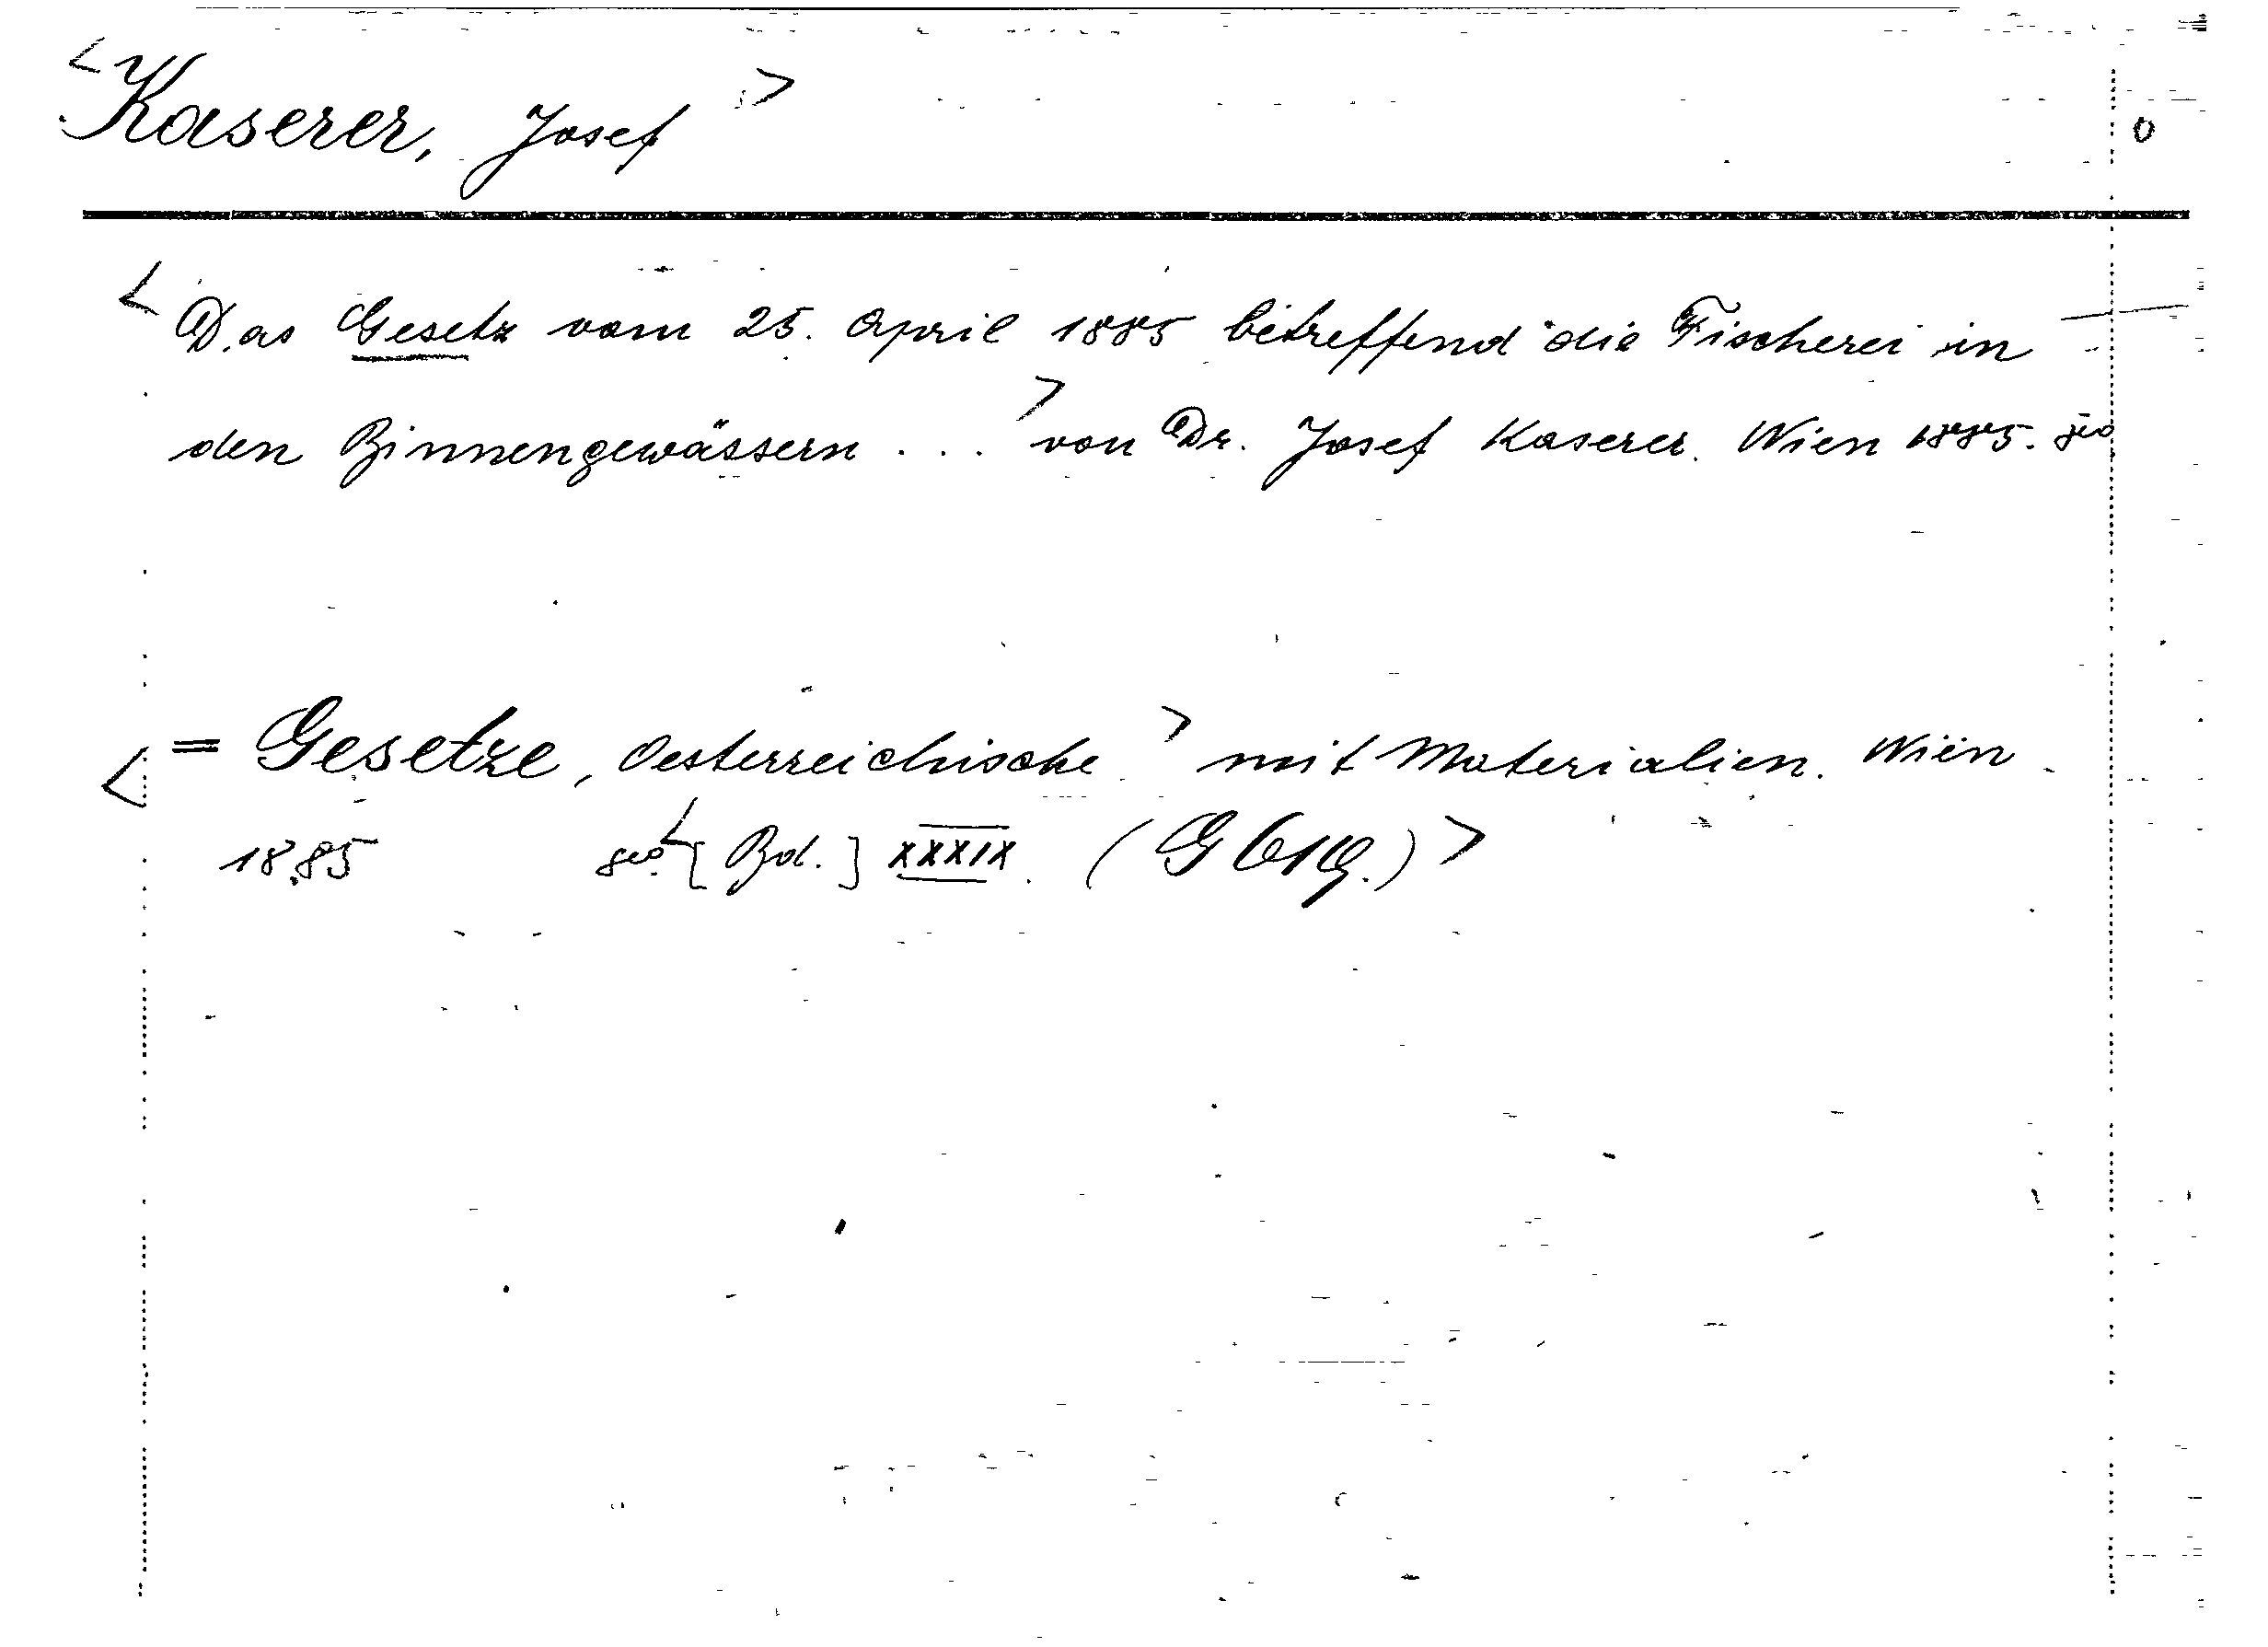 < Kaserer, Josef >
0
< Das Gesetz vom 25. April 1885 betreffend die Fischerei in
den Binnengewässern . . . > von Dr. Josef Kaserer. Wien 1885. 8o
< = Gesetze, Oesterreichische > mit Materialien. Wien
1885 8o. < [Bd.] XXXIX. ( >